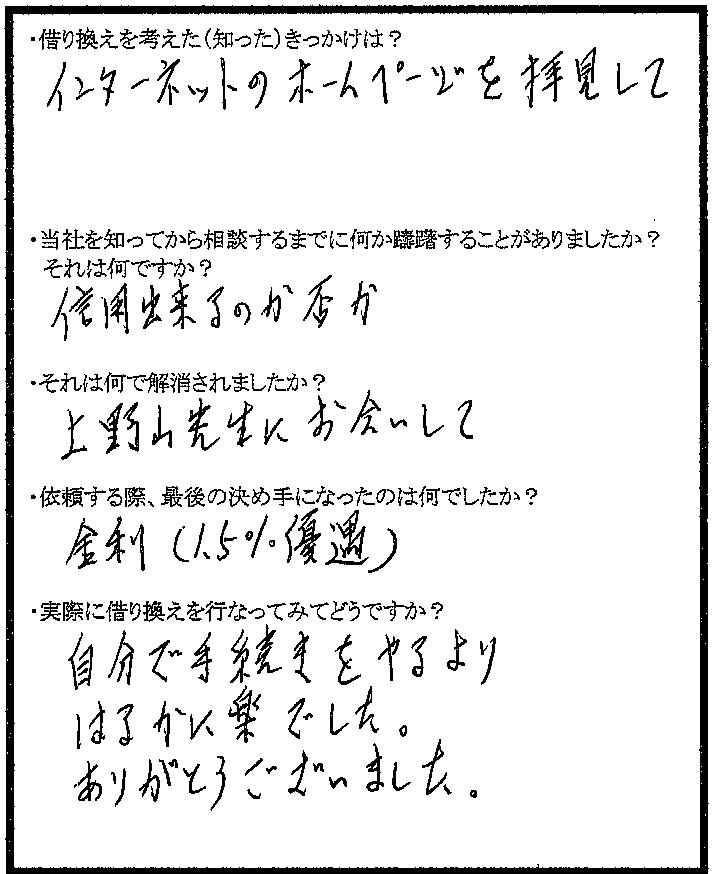 ・借り換えを考えた（知った）きっかけは？
インターネットのホームページを拝見して
・当社を知ってから相談するまでに何か躊躇することがありましたか？
それは何ですか？
信用出来るのか否か
・それは何で解消されましたか？
上野山先生にお会いして
・依頼する際、最後の決め手になったのは何でしたか？
金利（1.5％優遇）
・実際に借り換えを行なってみてどうですか？
自分で手続きをやるより
はるかに楽でした。
ありがとうございました。